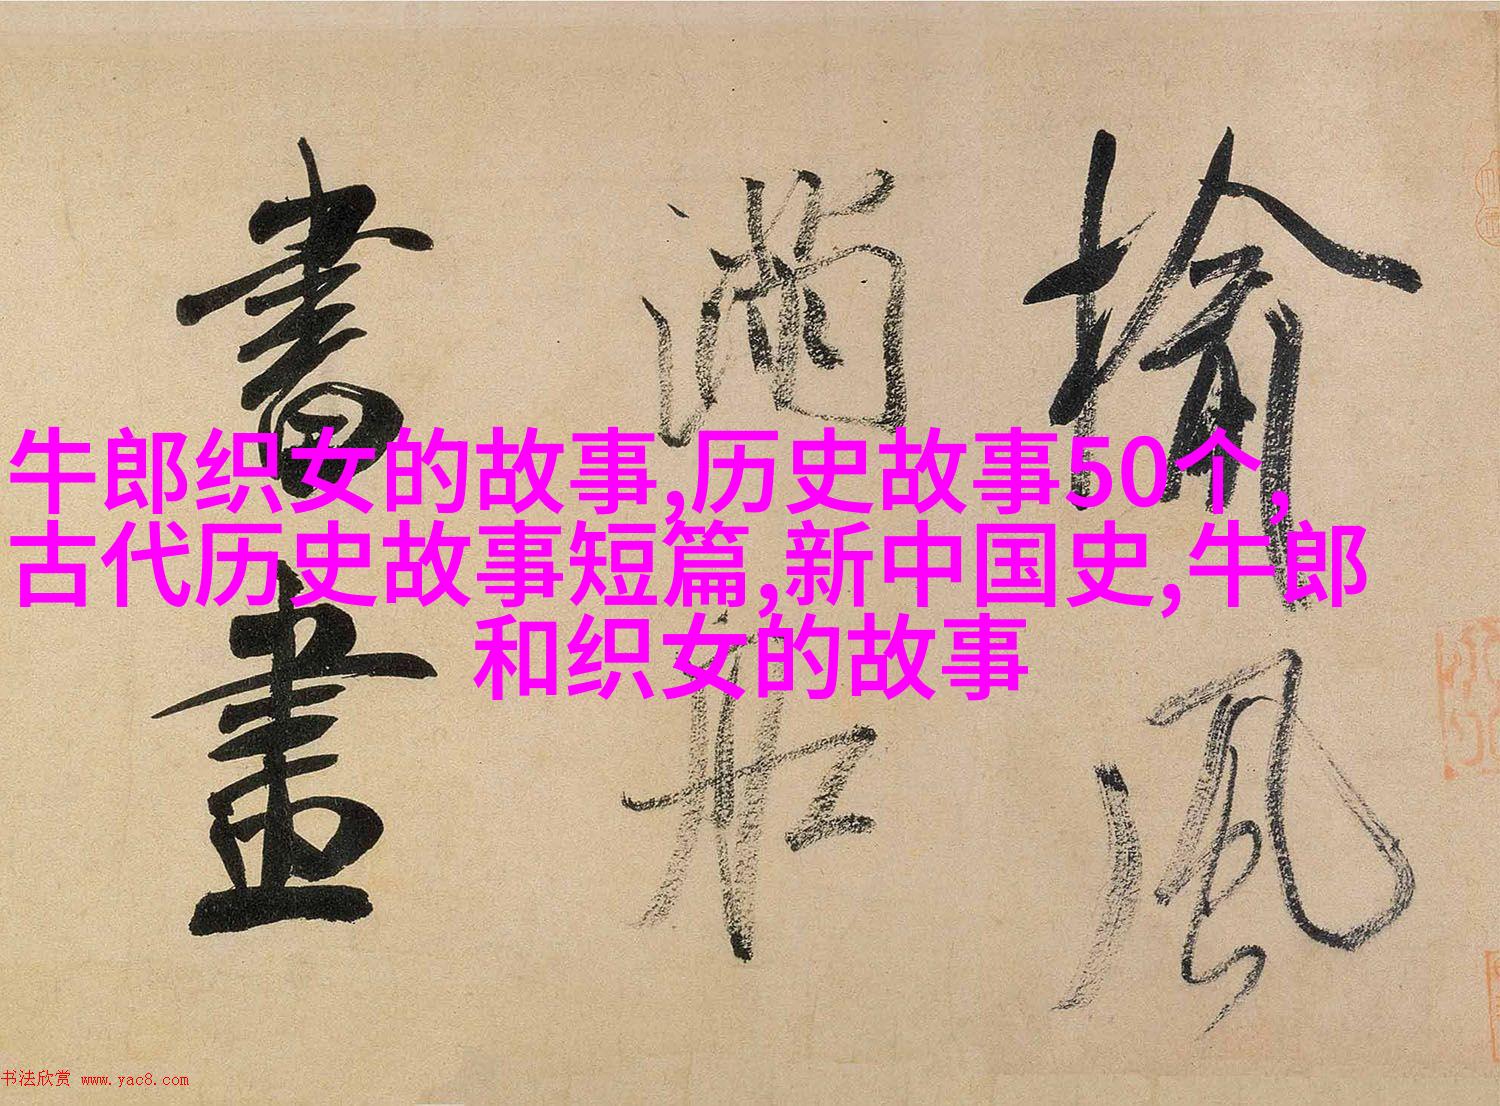 揄風
滿船
書畫
牛郎织女的故事,历史故事50个,
古代历史故事短篇,新中国史,牛郎
和织女的故事
书法欣赏 www.yac8.com